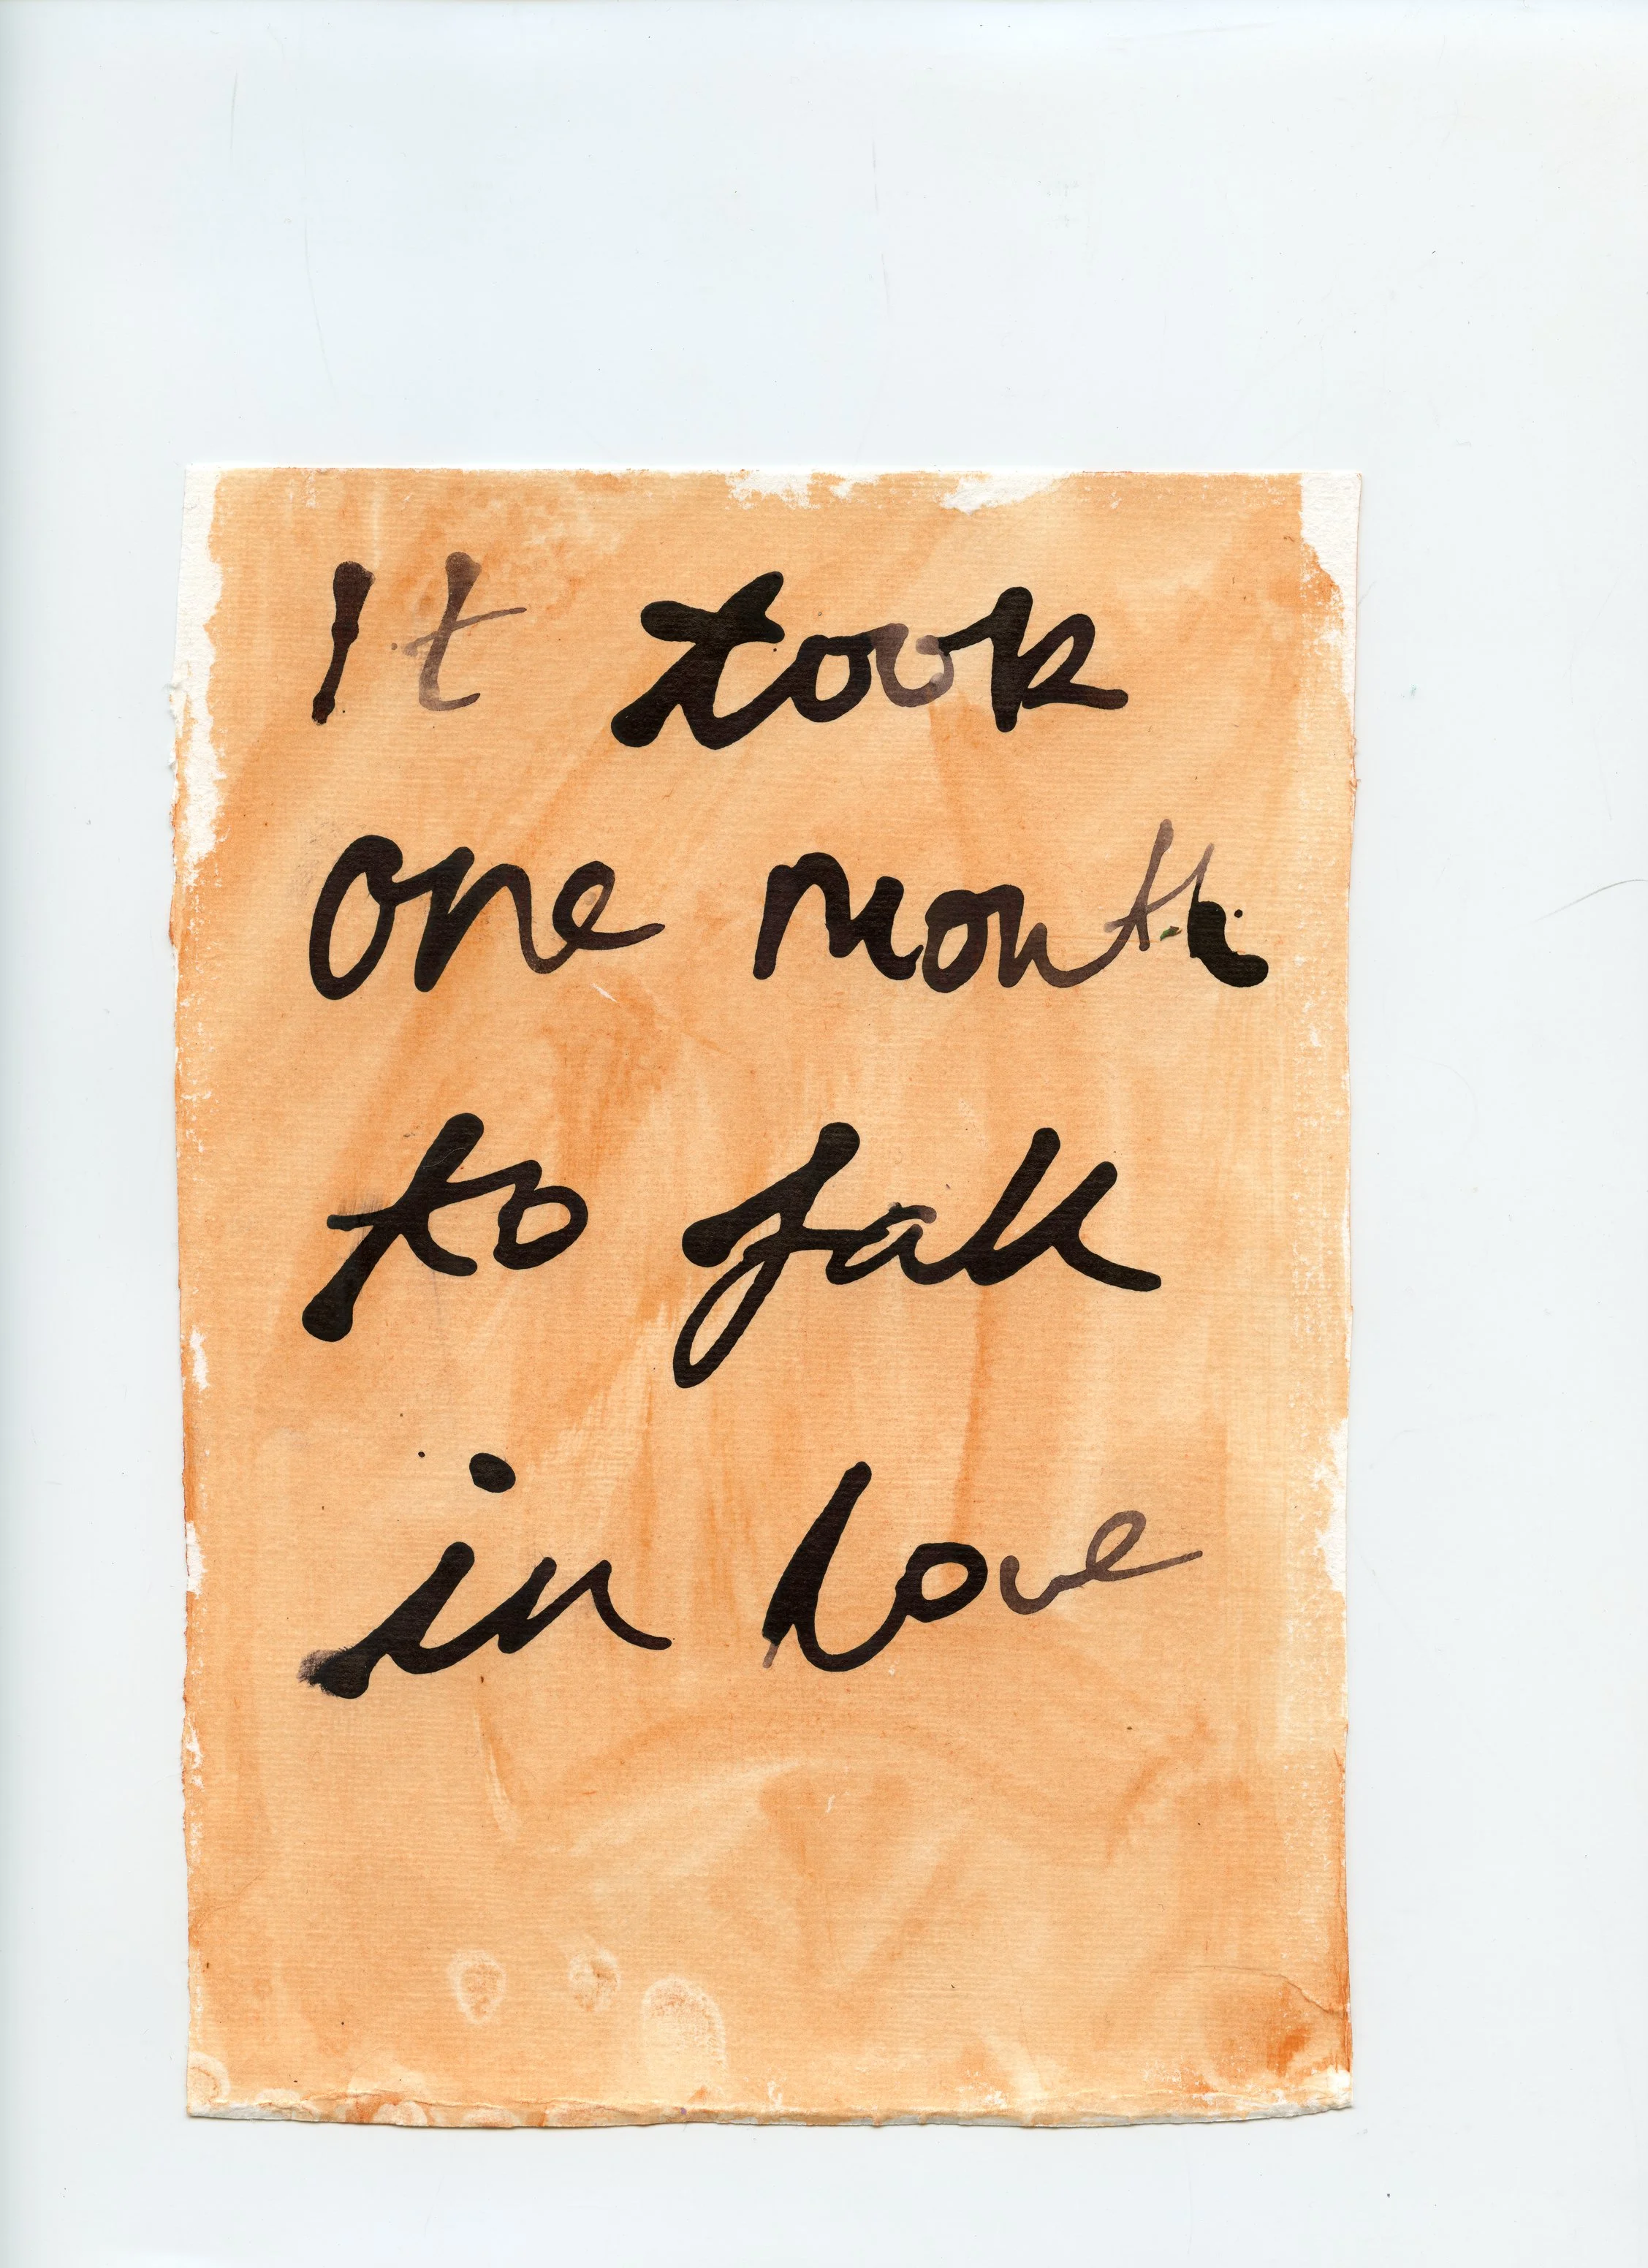 It took
one month
to fall
in love